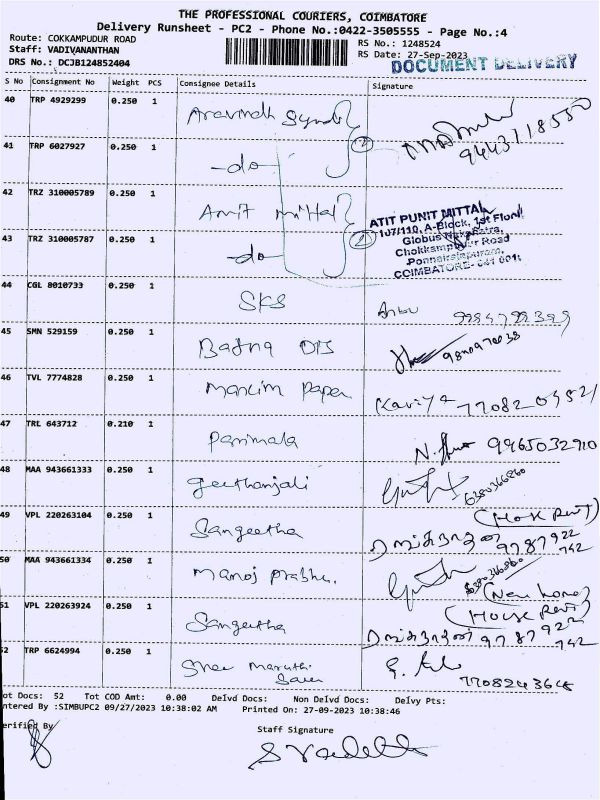 THE PROFESSIONAL COURIERS, COIMBATORE
Delivery Runsheet - PC2 - Phone No.:0422-3505555 - Page No.:4
Route: COKKAMPUDUR ROAD
Staff: VADIVANANTHAN
DRS No.: DCJB124852404
RS No.: 1248524
RS Date: 27-Sep-2023
DOCUMENT DELIVERY
S No Consignment No Weight PCS Consignee Details Signature
40 TRP 4929299 0.250 1 Aravindh Synd
9443718550
41 TRP 6027927 0.250 1 -do- 2
42 TRZ 310005789 0.250 1 Amit Mittal
ATIT PUNIT MITTAL
107/110, A-Block, 1st Floor
Globus
43 TRZ 310005787 0.250 1 -do- 2
Road
Ponnairajapuram,
COIMBATORE-641 001
44 CGL 8010733 0.250 1 SKS Anbu
45 SMN 529159 0.250 1 9840970038
46 TVL 7774828 0.250 1 Mancim Paper Kaviya
47 TRL 643712 0.210 1 Parimala 9965032910
48 MAA 943661333 0.250 1 Geethanjali 6380366860
49 VPL 220263104 0.250 1 Sangeetha
9787922
742
50 MAA 943661334 0.250 1 Manoj Prabhu. 6380366860
51 VPL 220263924 0.250 1 Sangeetha
9787922
742
52 TRP 6624994 0.250 1 Shree Maruthi
7708243648
ot Docs: 52 Tot COD Amt: 0.00 Delvd Docs: Non Delvd Docs: Delvy Pts:
ntered By :SIMBUPC2 09/27/2023 10:38:02 AM Printed On: 27-09-2023 10:38:46
erified By Staff Signature